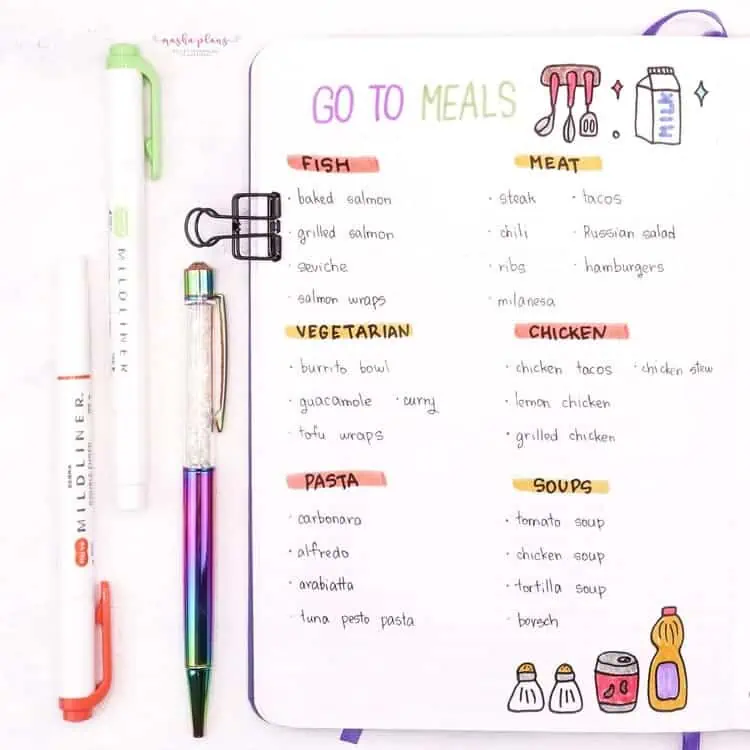 masha plans
GO TO MEALS
MILK
FISH
· baked salmon
· grilled salmon
· seviche
· salmon wraps
MEAT
· steak · tacos
· chili · Russian salad
· ribs · hamburgers
· milanesa
VEGETARIAN
· burrito bowl
· guacamole · curry
· tofu wraps
CHICKEN
· chicken tacos · chicken stew
· lemon chicken
· grilled chicken
PASTA
· carbonara
· alfredo
· arabiatta
· tuna pesto pasta
SOUPS
· tomato soup
· chicken soup
· tortilla soup
· borsch
MILDLINER
ZEBRA MILDLINER